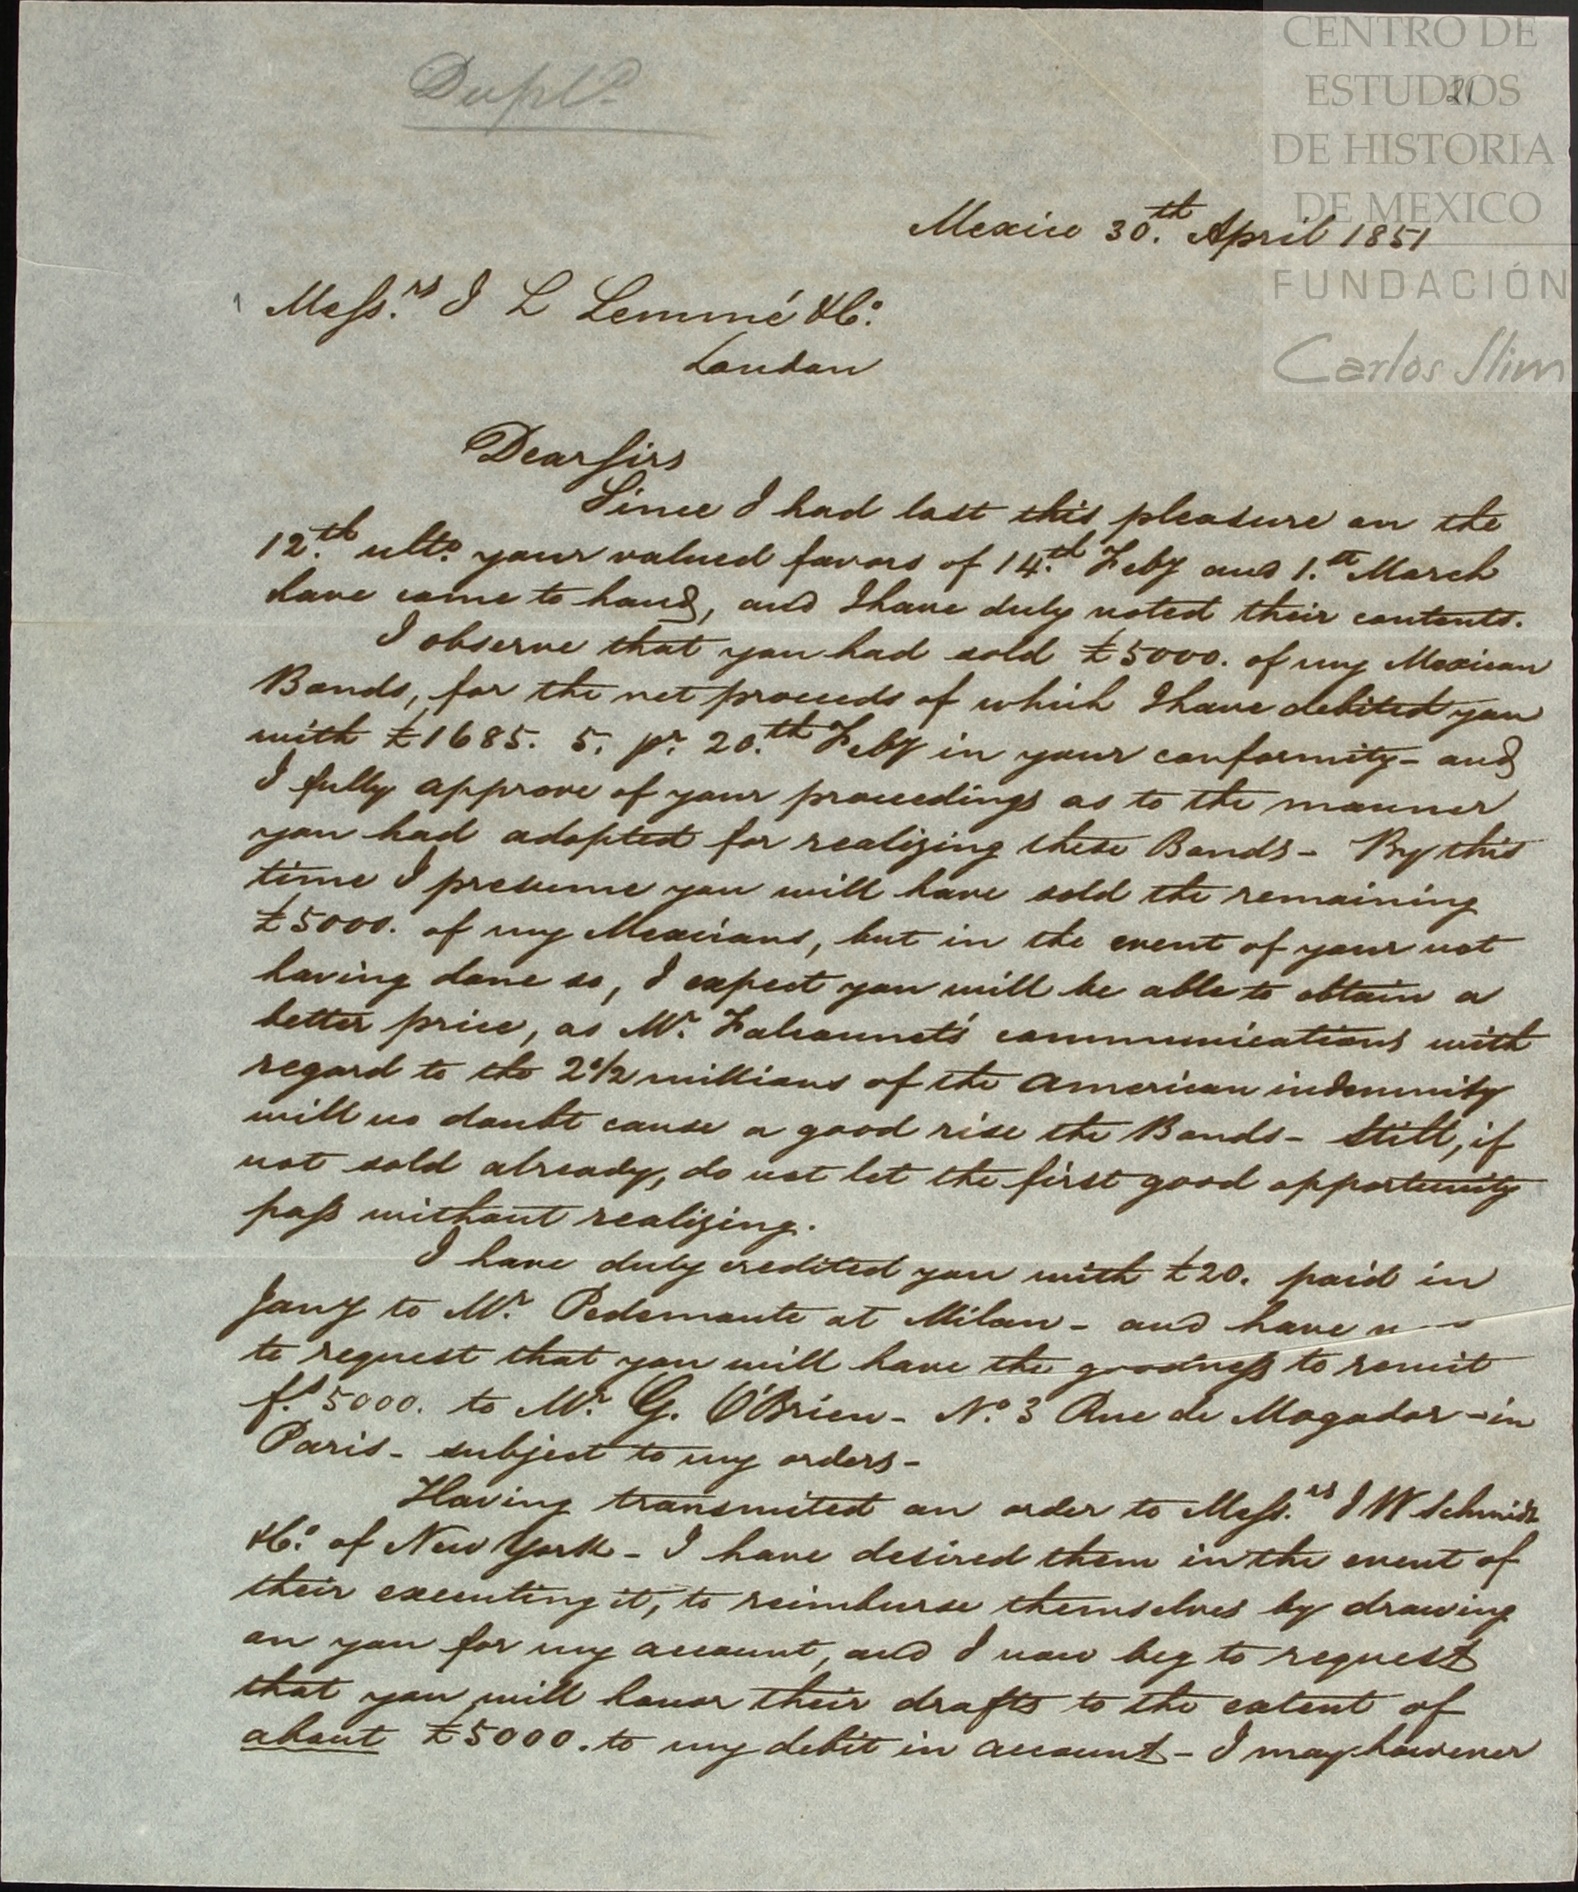 Dupl.
21
CENTRO DE
ESTUDIOS
DE HISTORIA
DE MEXICO
FUNDACIÓN
Carlos Slim
Mexico 30.th April 1851
Mess.rs J L Lemmé & Co.
London
Dear Sirs
Since I had last this pleasure on the
12.th ulto. your valued favors of 14.th Feby and 1.st March
have come to hand, and I have duly noted their contents.
I observe that you had sold £5000. of my Mexican
Bonds, for the net proceeds of which I have debited you
with £1685. 5. pr. 20.th Feby in your conformity - and
I fully approve of your proceedings as to the manner
you had adopted for realizing these Bonds - By this
time I presume you will have sold the remaining
£5000. of my Mexicans, but in the event of your not
having done so, I expect you will be able to obtain a
better price, as Mr. Falconnet's communications with
regard to the 2 1/2 millions of the American indemnity
will no doubt cause a good rise the Bonds - Still, if
not sold already, do not let the first good opportunity
pass without realizing.
I have duly credited you with £20. paid in
Jany to Mr. Pedemonte at Milan - and have
to request that you will have the goodness to remit
fs. 5000. to Mr. G. O'Brien - No. 3 Rue de Mogador - in
Paris - subject to my orders -
Having transmited an order to Mess.rs J W Schmidt
& Co. of New York - I have desired them in the event of
their executing it, to reimburse themselves by drawing
on you for my account, and I now beg to request
that you will honor their drafts to the extent of
about £5000. to my debit in account - I may however